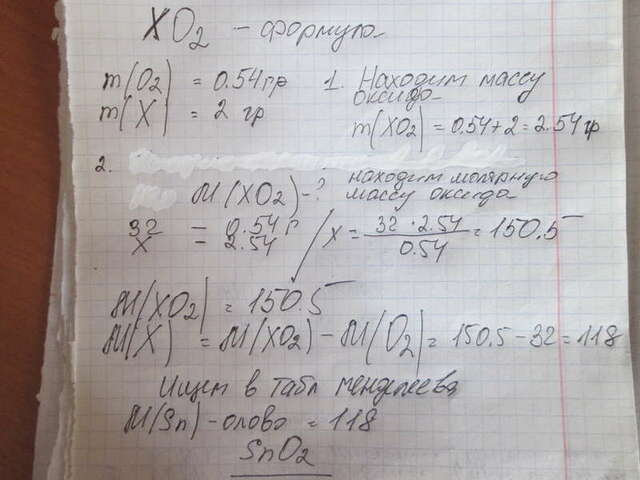 XO2 - формула
m(O2) = 0.54 гр
m(X) = 2 гр
1. Находим массу
оксида
m(XO2) = 0.54+2 = 2.54 гр
2.
M(XO2) - ?
находим молярную
массу оксида
32 - 0.54 г
X = 2.54
X = 32 · 2.54 / 0.54 = 150.5
M(XO2) = 150.5
M(X) = M(XO2) - M(O2) = 150.5 - 32 = 118
Ищем в табл менделеева
M(Sn) - олово = 118
SnO2